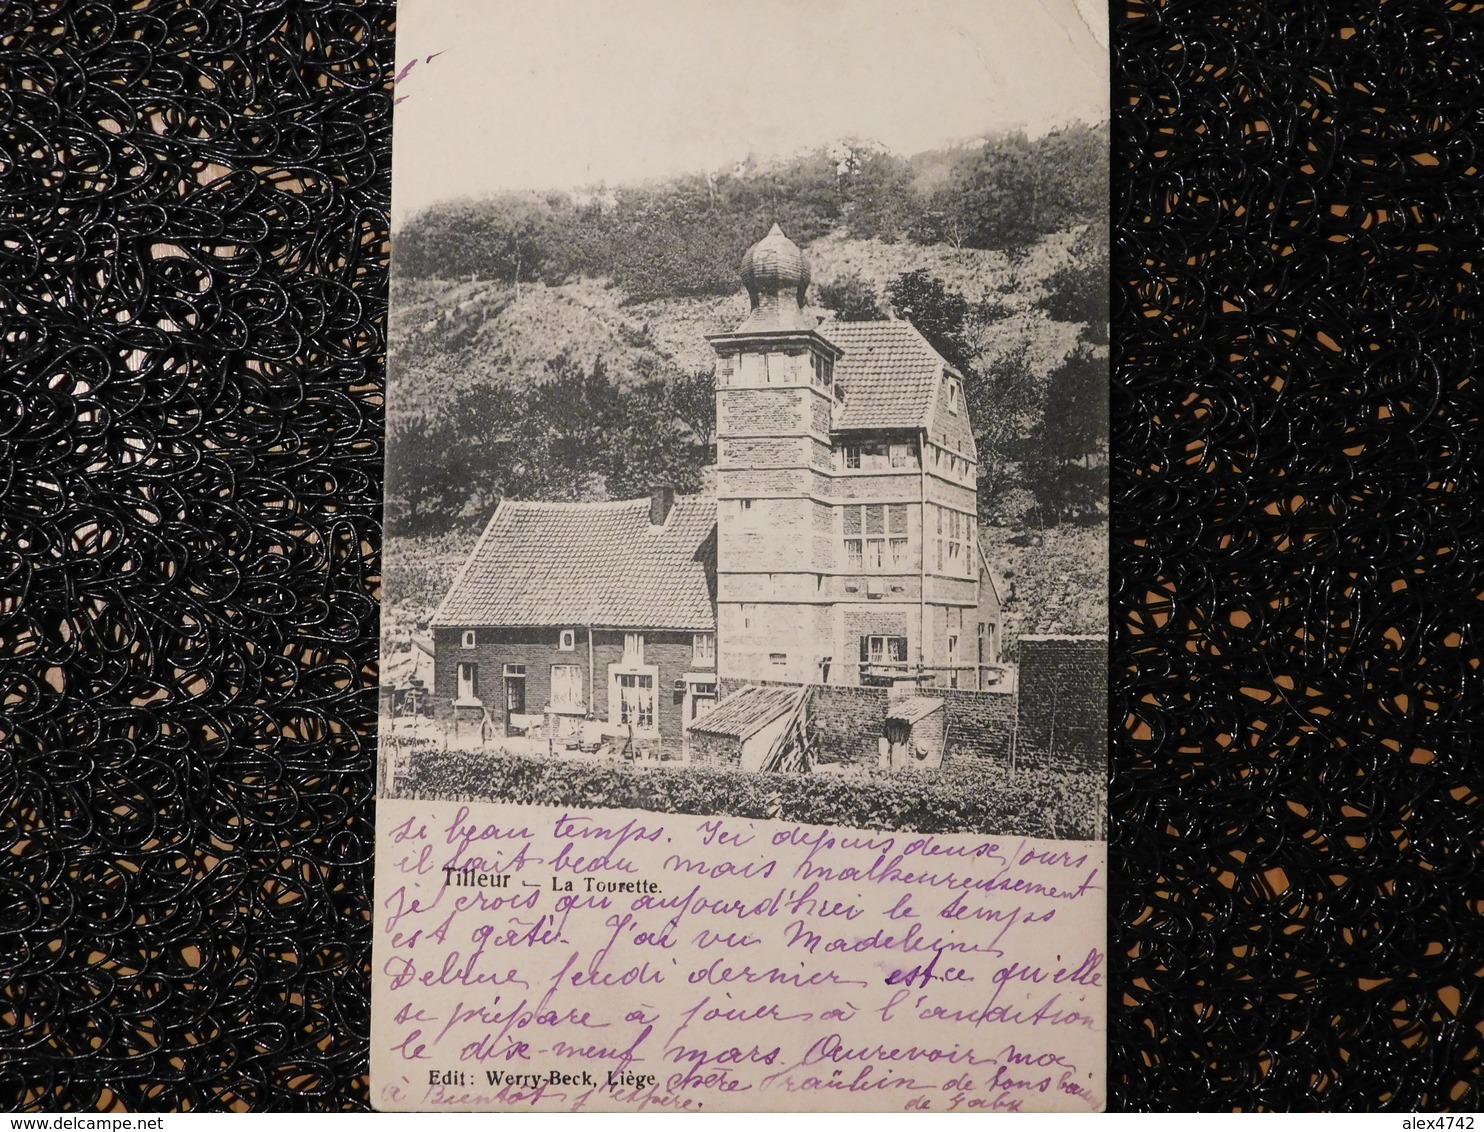 si beau temps. Ici depuis deux jours
il fait beau mais malheureusement
Tilleur – La Tourette.
je crois qu'aujourd'hui le temps
est gâté. J'ai vu Madeleine
jeudi dernier est-ce qu'elle
se prépare à jouer à l'audition
le dix-neuf mars. Aurevoir ma
Edit: Werry-Beck, Liège
chère de bons
à Bientôt j'espère. de Gaby
delcampe.net
alex4742